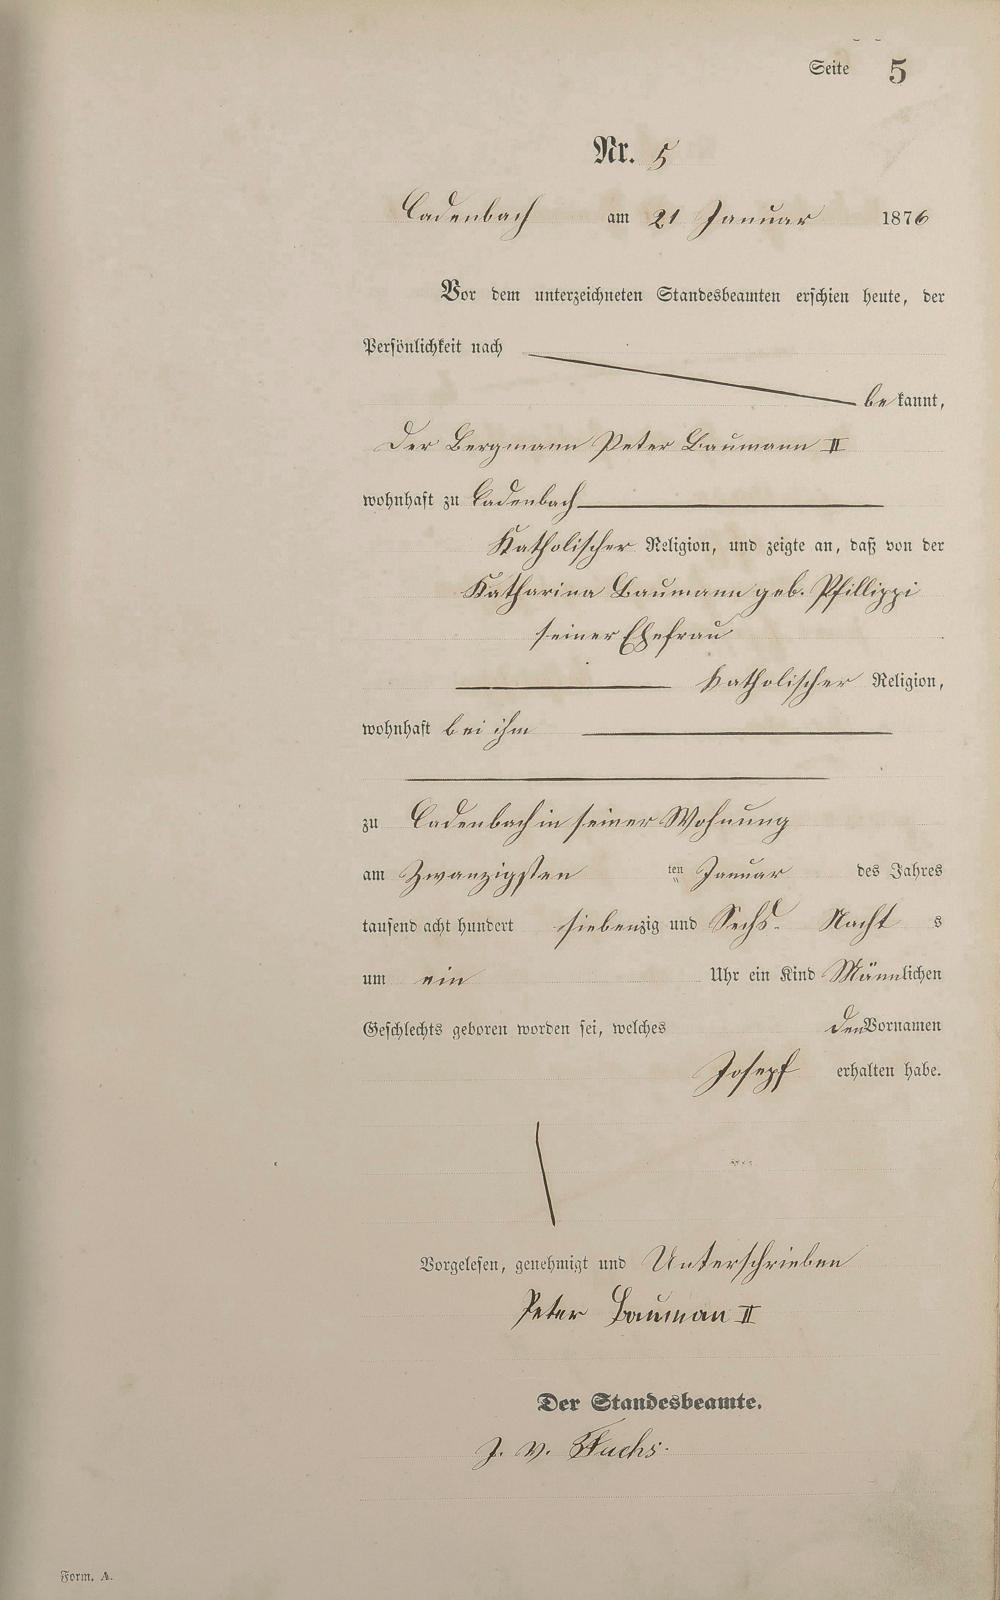 Seite 5
Nr. 5
Cadenbach am 21 Januar 1876
Vor dem unterzeichneten Standesbeamten erschien heute, der
Persönlichkeit nach
bekannt,
der Bergmann Peter Baumann II
wohnhaft zu Cadenbach
Katholischer Religion, und zeigte an, daß von der
Katharina Baumann geb. Pfillippi
seiner Ehefrau
Katholischer Religion,
wohnhaft bei ihm
zu Cadenbach in seiner Wohnung
am Zwanzigsten ten Januar des Jahres
tausend acht hundert siebenzig und Sechs. Nachts
um ein Uhr ein Kind Männlichen
Geschlechts geboren worden sei, welches den Vornamen
Josepf erhalten habe.
Vorgelesen, genehmigt und Unterschrieben
Peter Bauman II
Der Standesbeamte.
J. V. Fuchs.
Form. A.